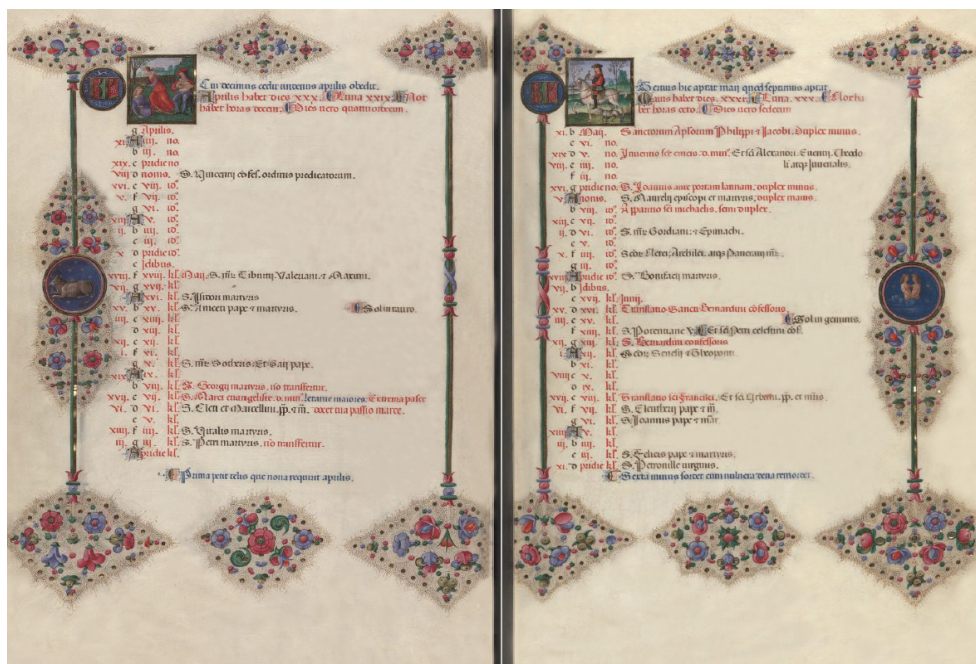 Cui decimus cedit undenus aprilis obedit.
Aprilis habet dies xxx. Luna xxix. Nox
habet horas decem. Dies vero quattuordecim.
g Aprilis.
xi. A iiii. no.
b iii. no.
xix. c pridie no
viii d nonis. S. Vincentij cõfes. ordinis predicatorum.
xvi. e viii. id9.
v. f vii. id9.
g vi. id9.
xiii A v. id9.
ii. b iiii. id9.
c iii. id9.
x d pridie id9
e Idibus.
xviii. f xviii. kl. Maij. S. mr Tiburtij Valeriani et Maximi.
vii. g xvii. kl.
A xvi. kl. S. martyris
xv. b xv. kl. S. Aniceti pape et martyris. Sol in tauro.
iiii. c xiiii. kl.
d xiii. kl.
xii. e xii. kl.
i. f xi. kl.
g x. kl. S. mr Sotheris. Et Gaij pape.
ix A ix. kl.
b viii. kl. S. Georgij martyris. no transfertur.
xvii. c vii. kl. S. Marci evangeliste. d. min9. letanie maiores. Extrema
vi. d vi. kl. S. Cleti et Marcellini. pp. et m. docet tua passio marce.
e v. kl.
xiiii. f iiii. kl. S. Vitalis martyris.
iii. g iii. kl. S. Petri martyris. no transfertur.
A pridie kl.
Prima perit telis que nona requirit aprilis.
habet dies. xxxi. Luna. xxx. Nox ha
bet horas octo. Dies vero sedecim
xi. b Maij. Sanctorum Apostolorum Philippi et Jacobi. duplex minus.
c vi. no.
xix d v. no. Inventio scte crucis. d. min9. Et sci Alexandri. Eventij. Theodo
viii e iiii. no. li. atqz Juvenalis.
f iii. no.
xvi. g pridie no. S. Joannis ante portam latinam. duplex minus.
v. A nonis. S. Maurelij episcopi et martyris. duplex maius.
b viii. id9. Apparitio sci michaelis. semi duplex.
xiii c vii. id9.
ii. d vi. id9. S. mr Gordiani. et Epimachi.
e v. id9.
x f iiii. id9. Nerei. Archilei. atqz Pancratij mr.
g iii. id9.
xviii A pridie id9. S. Bonifacij martyris.
vii. b Idibus.
c xvii. kl. Junij.
xv. d xvi. kl. Translatio Sancti Bernardini cõfessoris.
iiii. e xv. kl. Sol in geminis.
f xiiii. kl. S. Potentiane Et sci Petri celestini cõf.
xii. g xiii. kl. S. Bernardini confessoris
i. A xii. kl.
b xi. kl.
viiii c x. kl.
d ix. kl.
xvii. e viii. kl. Translatio sci francisci. Et sci Urbani. pp. et mris.
vi. f vii. kl. S. Eleutherij pape et m.
g vi. kl. S. Joannis pape et mr.
xiiii A v. kl.
iii. b iiii. kl.
c iii. kl. S. Felicis pape et martyris.
xi. d pridie kl. S. Petronille virginis.